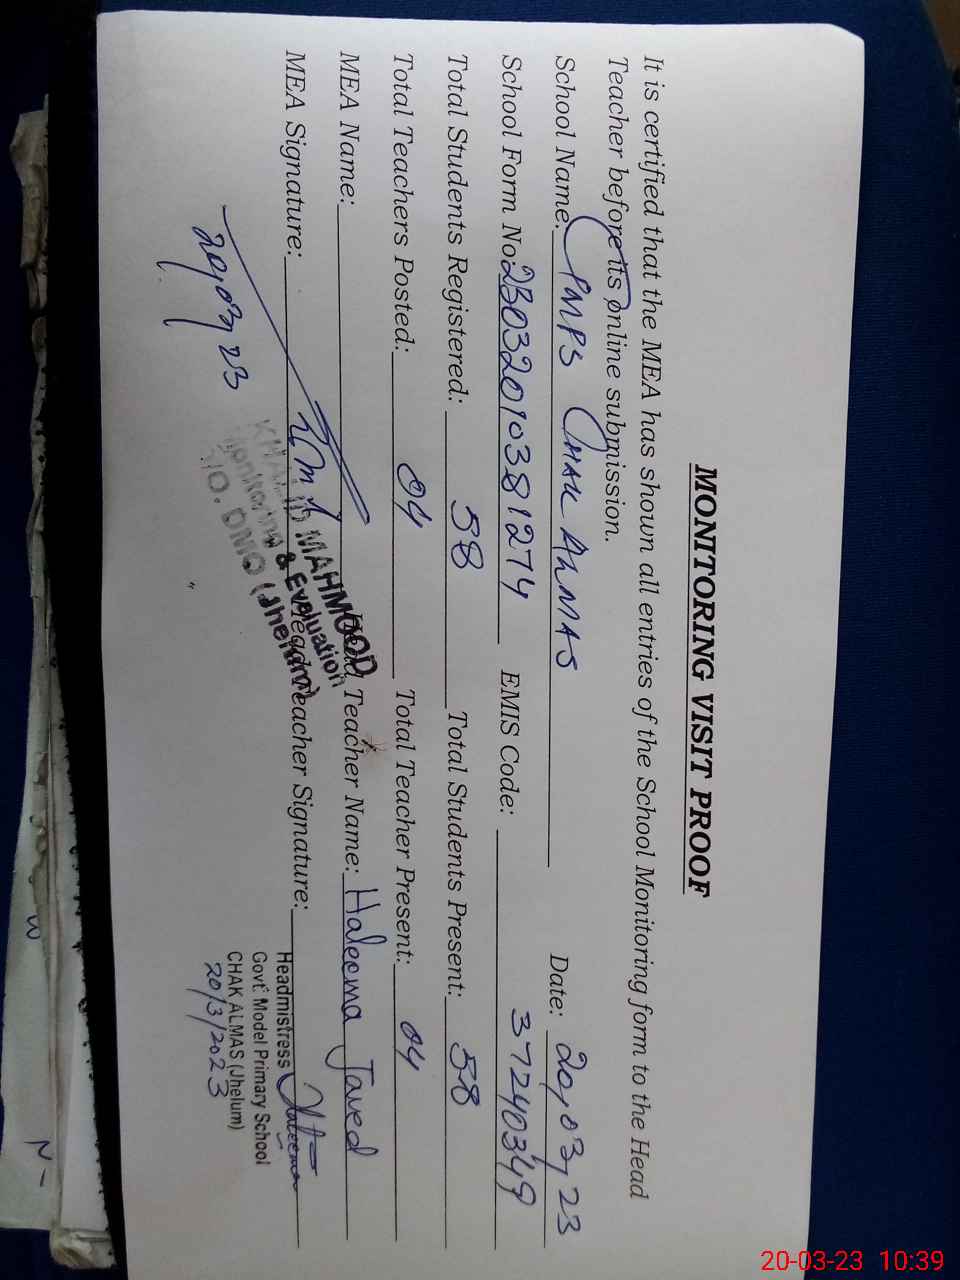 MONITORING VISIT PROOF
It is certified that the MEA has shown all entries of the School Monitoring form to the Head
Teacher before its online submission.
School Name: GMPS CHAK ALMAS Date: 20/03/23
School Form No. 23032010381274 EMIS Code: 37240349
Total Students Registered: 58 Total Students Present: 58
Total Teachers Posted: 04 Total Teacher Present: 04
MEA Name: Head Teacher Name: Haleema Javed
MEA Signature: Head Teacher Signature: Haleema
KHALID MAHMOOD
Monitoring & Evaluation
O/O. DMO (Jhelum)
20/03/23
Headmistress
Govt: Model Primary School
CHAK ALMAS (Jhelum)
20/3/2023
20-03-23 10:39